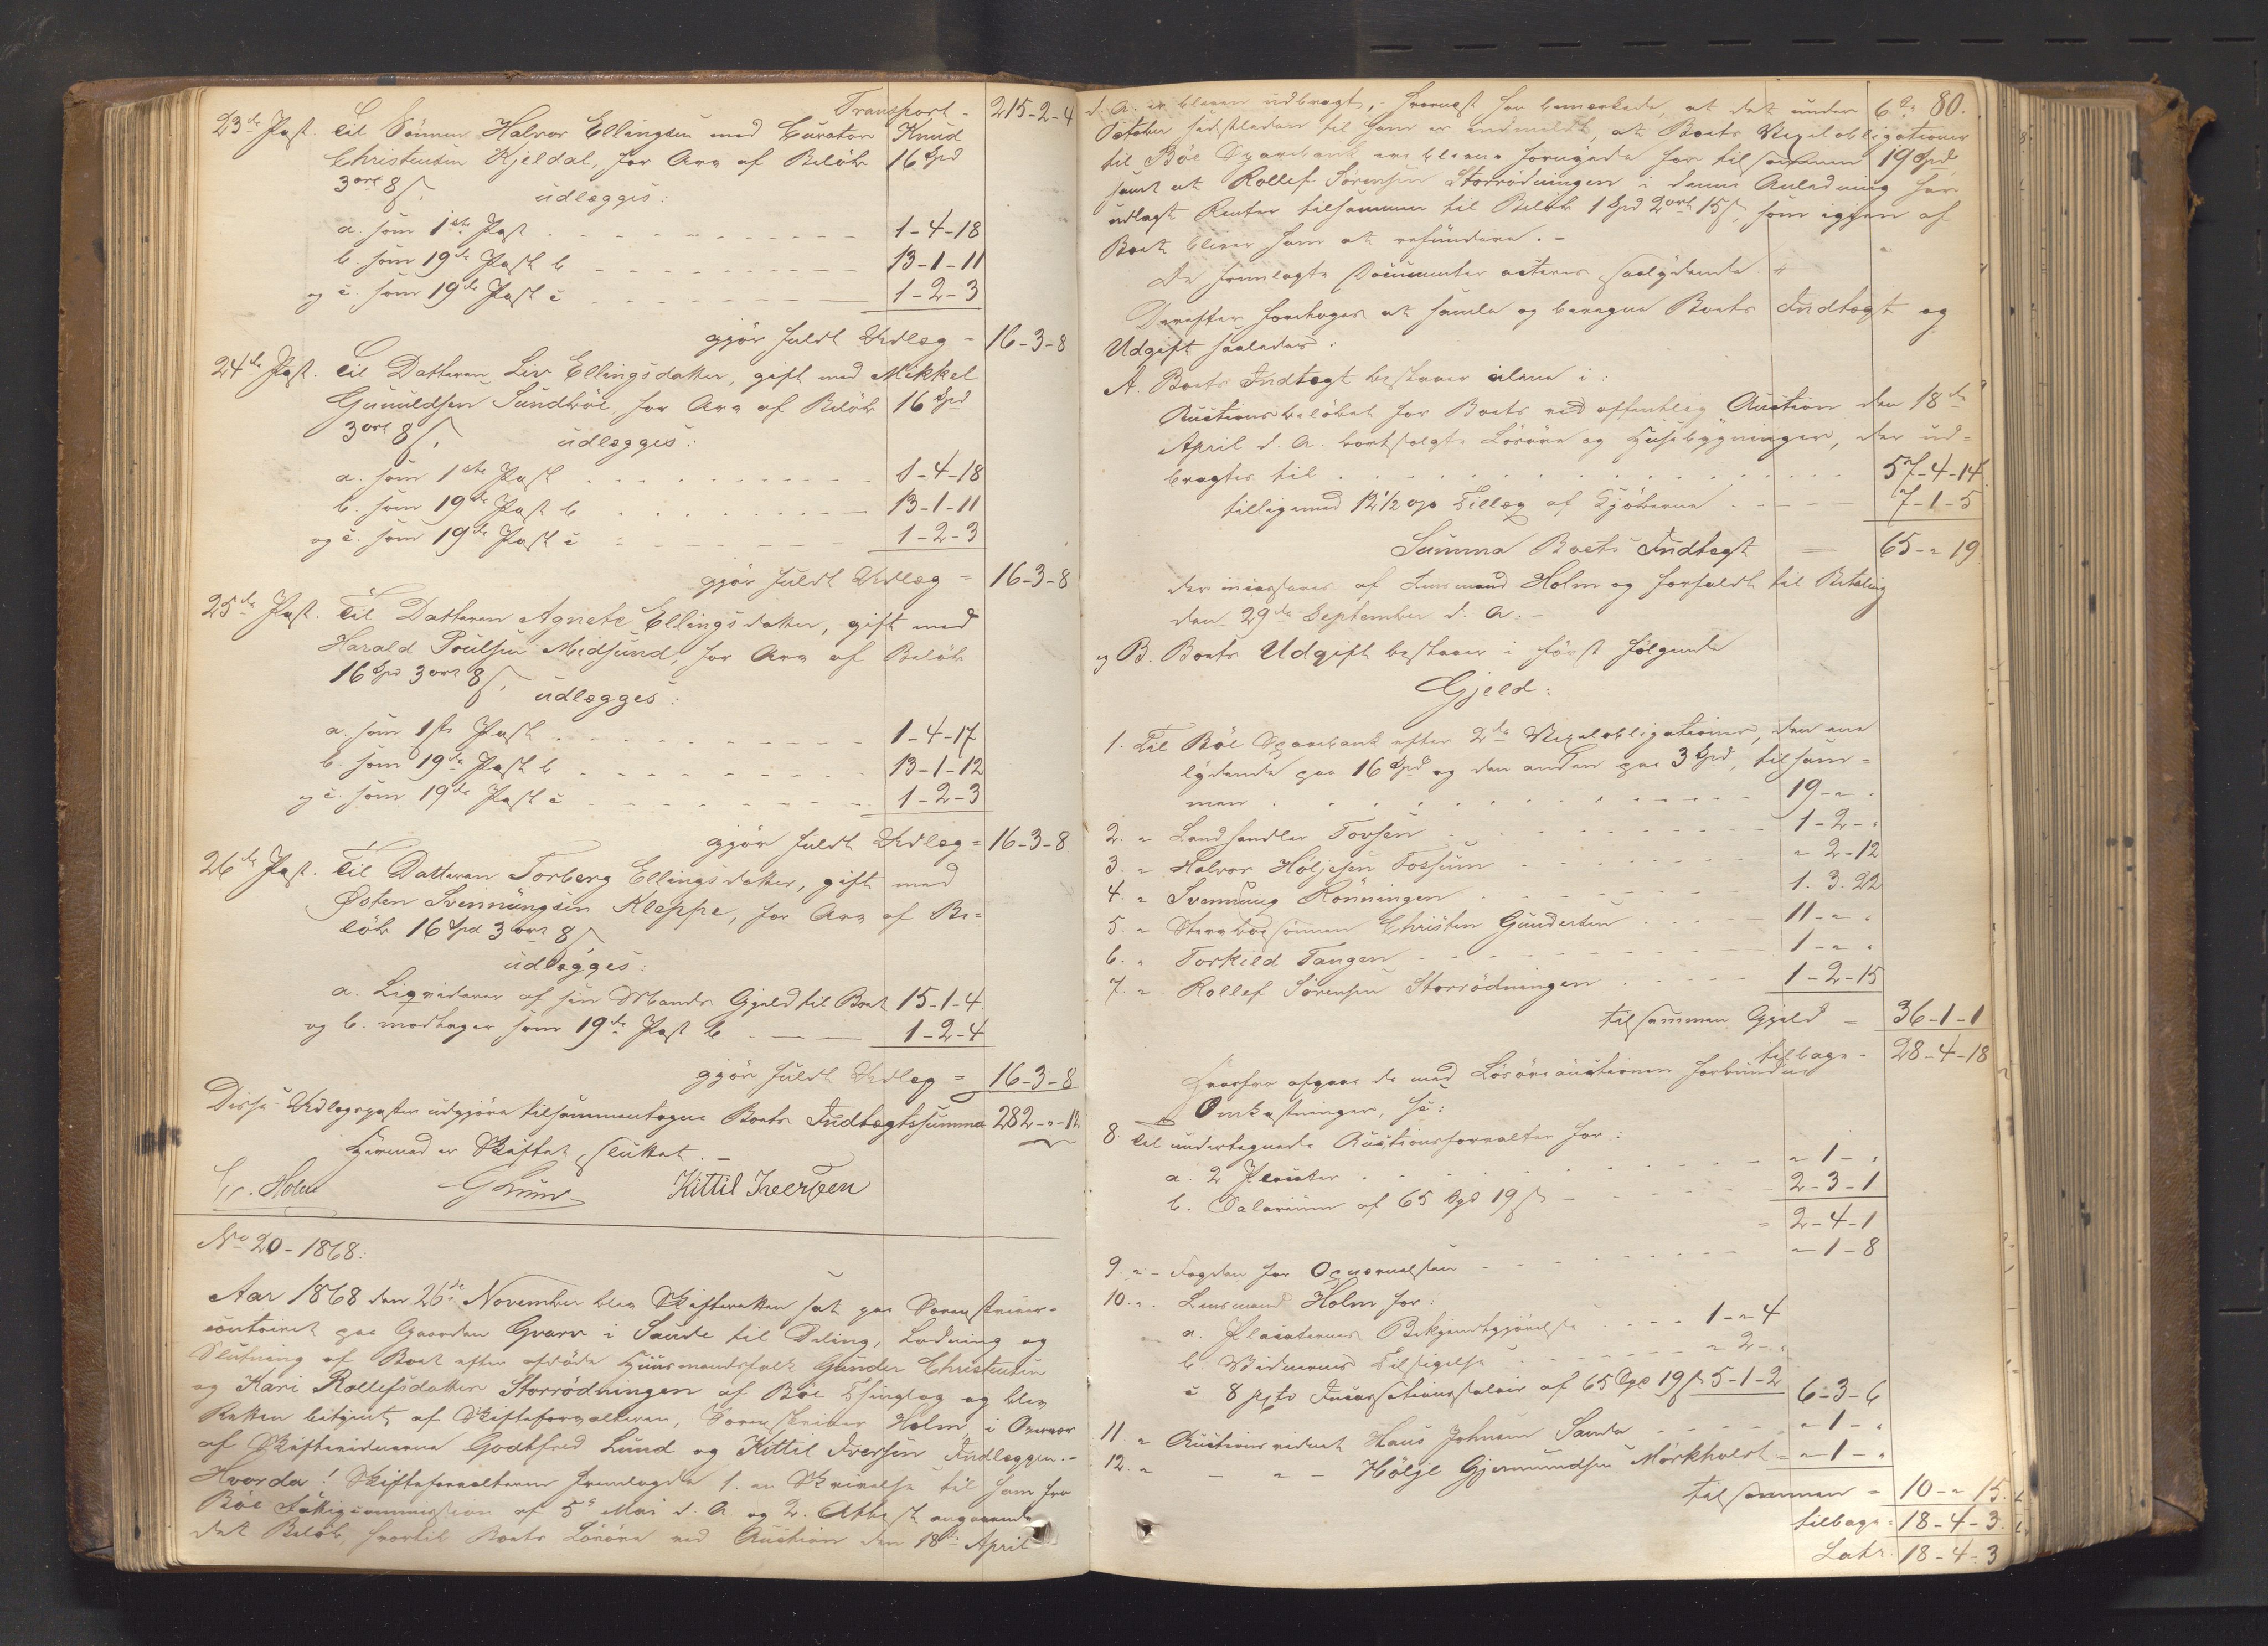 Transport - 215-2-4
23de Post. Til Sønnen Halvor Ellingsen med Curator Knud
Christensen Kjeldal, for Arv af Beløb 16 Spd
3 ort 8 ß, udlægges:
a. som 1ste Post 1-4-18
b. som 19de Post b 13-1-11
og c. som 19de Post c 1-2-3
gjør fuldt Udlæg = 16-3-8
24de Post. Til Datteren Liv Ellingsdatter, gift med Mikkel
Gunuldsen Sundbøe, for Arv af Beløb 16 Spd
3 ort 8 ß, udlægges:
a. som 1ste Post 1-4-18
b. som 19de Post b 13-1-11
og c. som 19de Post c 1-2-3
gjør fuldt Udlæg = 16-3-8
25de Post. Til Datteren Agnete Ellingsdatter, gift med
Harald Poulsen Midsund, for Arv af Beløb
16 Spd 3 ort 8 ß, udlægges:
a. som 1ste Post 1-4-17
b. som 19de Post b 13-1-12
og c. som 19de Post c 1-2-3
gjør fuldt Udlæg = 16-3-8
26de Post. Til Datteren Torberg Ellingsdatter, gift med
Østen Svennungsen Kleppe, for Arv af Be-
løb 16 Spd 3 ort 8 ß,
udlægges:
a. Liqviderer af sin Mands Gjeld til Boet 15-1-4
og b. modtager som 19de Post b 1-2-4
gjør fuldt Udlæg = 16-3-8
Disse Udlægsposter udgjøre tilsammentagne Boets Indtægtssumma 282-"-12
Hermed er Skiftet sluttet.
Holm GLund Kittil Iversen
No 20-1868:
Aar 1868 den 26de November blev Skifteretten sat paa Sorenskriver-
contoiret paa Gaarden Gvarv i Saude til Deling, Lodning og
Slutning af Boet efter afdøde Huusmandsfolk Gunder Christensen
og Kari Rollefsdatter Storrødningen af Bøe Thinglag og blev
Retten betjent af Skifteforvalteren, Sorenskriver Holm, i Overvær
af Skiftevidnerne Godtfred Lund og Kittil Iversen Indlæggen.-
Hvorda! Skifteforvalteren fremlagde 1. en Skrivelse til ham fra
Bøe Fattigcommission af 5te Mai d. A. og 2. Attest angaaende
det Beløb, hvortil Boets Løsøre ved Auction den 18de April
80.
d. A. er bleven udbragt, - hvornæst han bemærkede, at det under 6te
October sidstleden til ham er indmeldt, at Boets Vexelobligationer
til Bøe Sparebank ere blevne fornyede for tilsammen 19 Spd,
samt at Rollef Sørensen Storrødningen i denne Anledning har
udlagt Renter tilsammen til Beløb 1 Spd 2 ort 15 ß, som igjen af
Boet bliver ham at refundere. -
De fremlagte Documenter acteres saalydende
Derefter foretoges at samle og beregne Boets Indtægt og
Udgift saaledes:
A. Boets Indtægt bestaaer alene i:
Auctionsbeløbet for Boets ved offentlig Auction den 18de
April d. A. bortsolgte Løsøre og Huusbygninger, der ud-
bragtes til 57-4-14
tilligemed 12 1/2 o/o Tillæg af Kjøberne 7-1-5
Summa Boets Indtægt = 65-"-19
der incasseres af Lensmand Holm og forfaldt til Betaling
den 29de September d. A. -
og B. Boets Udgift bestaaer i først følgende
Gjeld:
1. Til Bøe Sparebank efter 2de Vexelobligationer, den ene
lydende paa 16 Spd og den anden paa 3 Spd, tilsam-
men 19-"-"
2. " Landhandler Tovsen 1-2-"
3. " Halvor Høljesen Fossum " 2-12
4. " Svennung Rønningen 1.3.22
5. " Stervboesønnen Christen Gundersen 11-"-"
6. " Torkild Tangen 1-"-"
7. " Rollef Sørensen Storrødningen 1-2-15
tilsammen Gjeld = 36-1-1
tilbage = 28-4-18
Hvorfra afgaae de med Løsøreauctionen forbundne
Omkostninger, so:
8. Til undertegnede Auctionsforvalter for:
a. 2 Placater " 1-"
b. Salarium af 65 Spd 19 ß 2-3-1
= 2-4-1
9. " Fogden for Opnævnelsen " 1-8
10. " Lensmand Holm for:
a. Placaternes Bekjendtgjørelse 1-"-4
b. Vidnernes Tilsigelse " 2-"
c. 8 pCto Incassationssalair af 65 Spd 19 ß 5-1-2 6-3-6
11. " Auctionsvidnet Hans Johnsen Sanda " 1-"
12. " - " - Hølje Gjermundsen Mørkholst = " 1-"
tilsammen = 10-"-15
tilbage = 18-4-3
Lat. 18-4-3